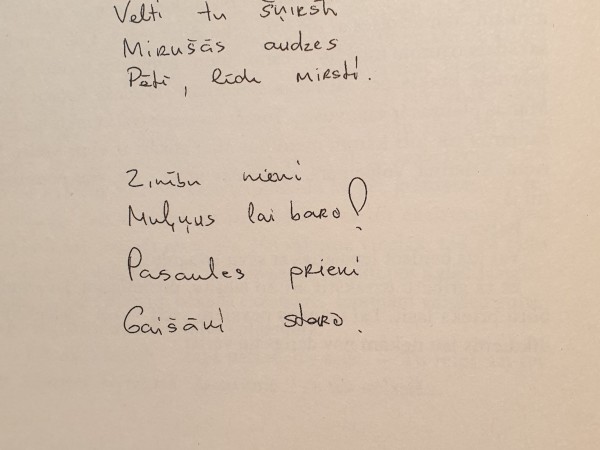 Velti tu šņirkšķ
Mirušās audzes
Pētī, līdz mirsti.
Zinību nieni
Muļķus lai baro!
Pasaules prieni
Gaišāki staro.